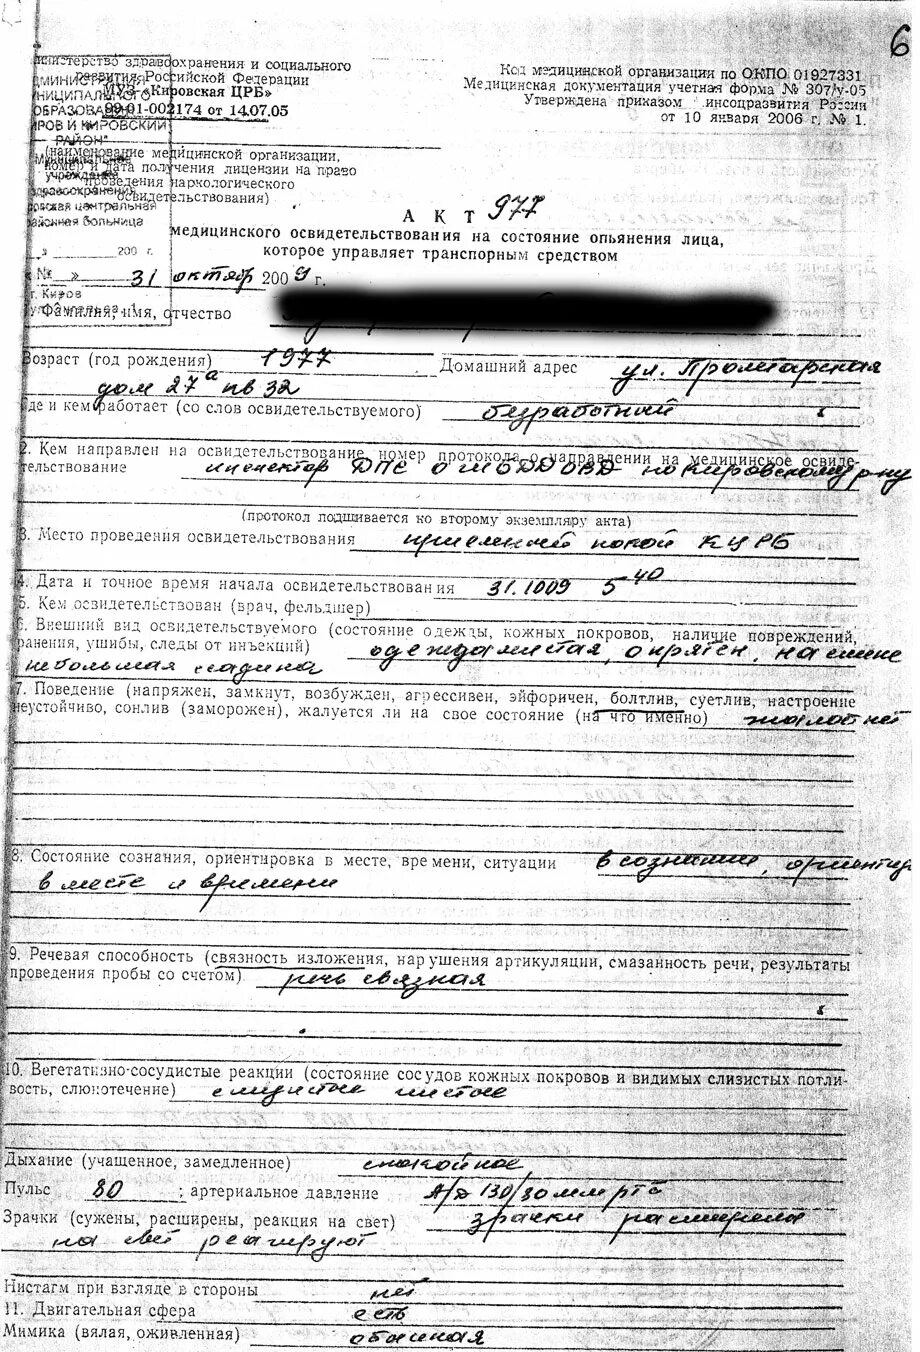 6
Министерство здравоохранения и социального
развития Российской Федерации
МУЗ «Кировская ЦРБ»
99-01-002174 от 14.07.05
Код медицинской организации по ОКПО 01927331
Медицинская документация учетная форма № 307/у-05
Утверждена приказом инсоцразвития России
от 10 января 2006 г. № 1.
АДМИНИСТРАЦИЯ
МУНИЦИПАЛЬНОГО
ОБРАЗОВАНИЯ
КИРОВ И КИРОВСКИЙ
РАЙОН"
Муниципальное
учреждение
здравоохранения
центральная
районная больница
« » 200 г.
№
г. Киров
(наименование медицинской организации,
номер и дата получения лицензии на право
проведения наркологического
освидетельствования)
АКТ 977
медицинского освидетельствования на состояние опьянения лица,
которое управляет транспорным средством
» 31 октябр 2009 г.
Фамилия, имя, отчество
Возраст (год рождения) 1977 Домашний адрес ул. Пролетарская
дом 27а кв 32
где и кем работает (со слов освидетельствуемого) безработный
2. Кем направлен на освидетельствование, номер протокола о направлении на медицинское освиде-
тельствование инспектор ДПС ОГИБДД ОВД по Кировскому р-ну
(протокол подшивается ко второму экземпляру акта)
3. Место проведения освидетельствования приемный покой КЦРБ
4. Дата и точное время начала освидетельствования 31.1009 5 40
5. Кем освидетельствован (врач, фельдшер)
6. Внешний вид освидетельствуемого (состояние одежды, кожных покровов, наличие повреждений,
ранения, ушибы, следы от инъекций) одежда чистая, опрятен, на спине
небольшая ссадина
7. Поведение (напряжен, замкнут, возбужден, агрессивен, эйфоричен, болтлив, суетлив, настроение
неустойчиво, сонлив (заморожен), жалуется ли на свое состояние (на что именно) жалоб нет
8. Состояние сознания, ориентировка в месте, времени, ситуации в сознании, ориентир
в месте и времени
9. Речевая способность (связность изложения, нарушения артикуляции, смазанность речи, результаты
проведения пробы со счетом) речь связная
10. Вегетативно-сосудистые реакции (состояние сосудов кожных покровов и видимых слизистых потли-
вость, слюнотечение) слизистые чистые
Дыхание (учащенное, замедленное) спокойное
Пульс 80 ; артериальное давление А/Д 130/80 мм рт с
Зрачки (сужены, расширены, реакция на свет) зрачки расширены
на свет реагируют
Нистагм при взгляде в стороны нет
11. Двигательная сфера есть
Мимика (вялая, оживленная) обычная